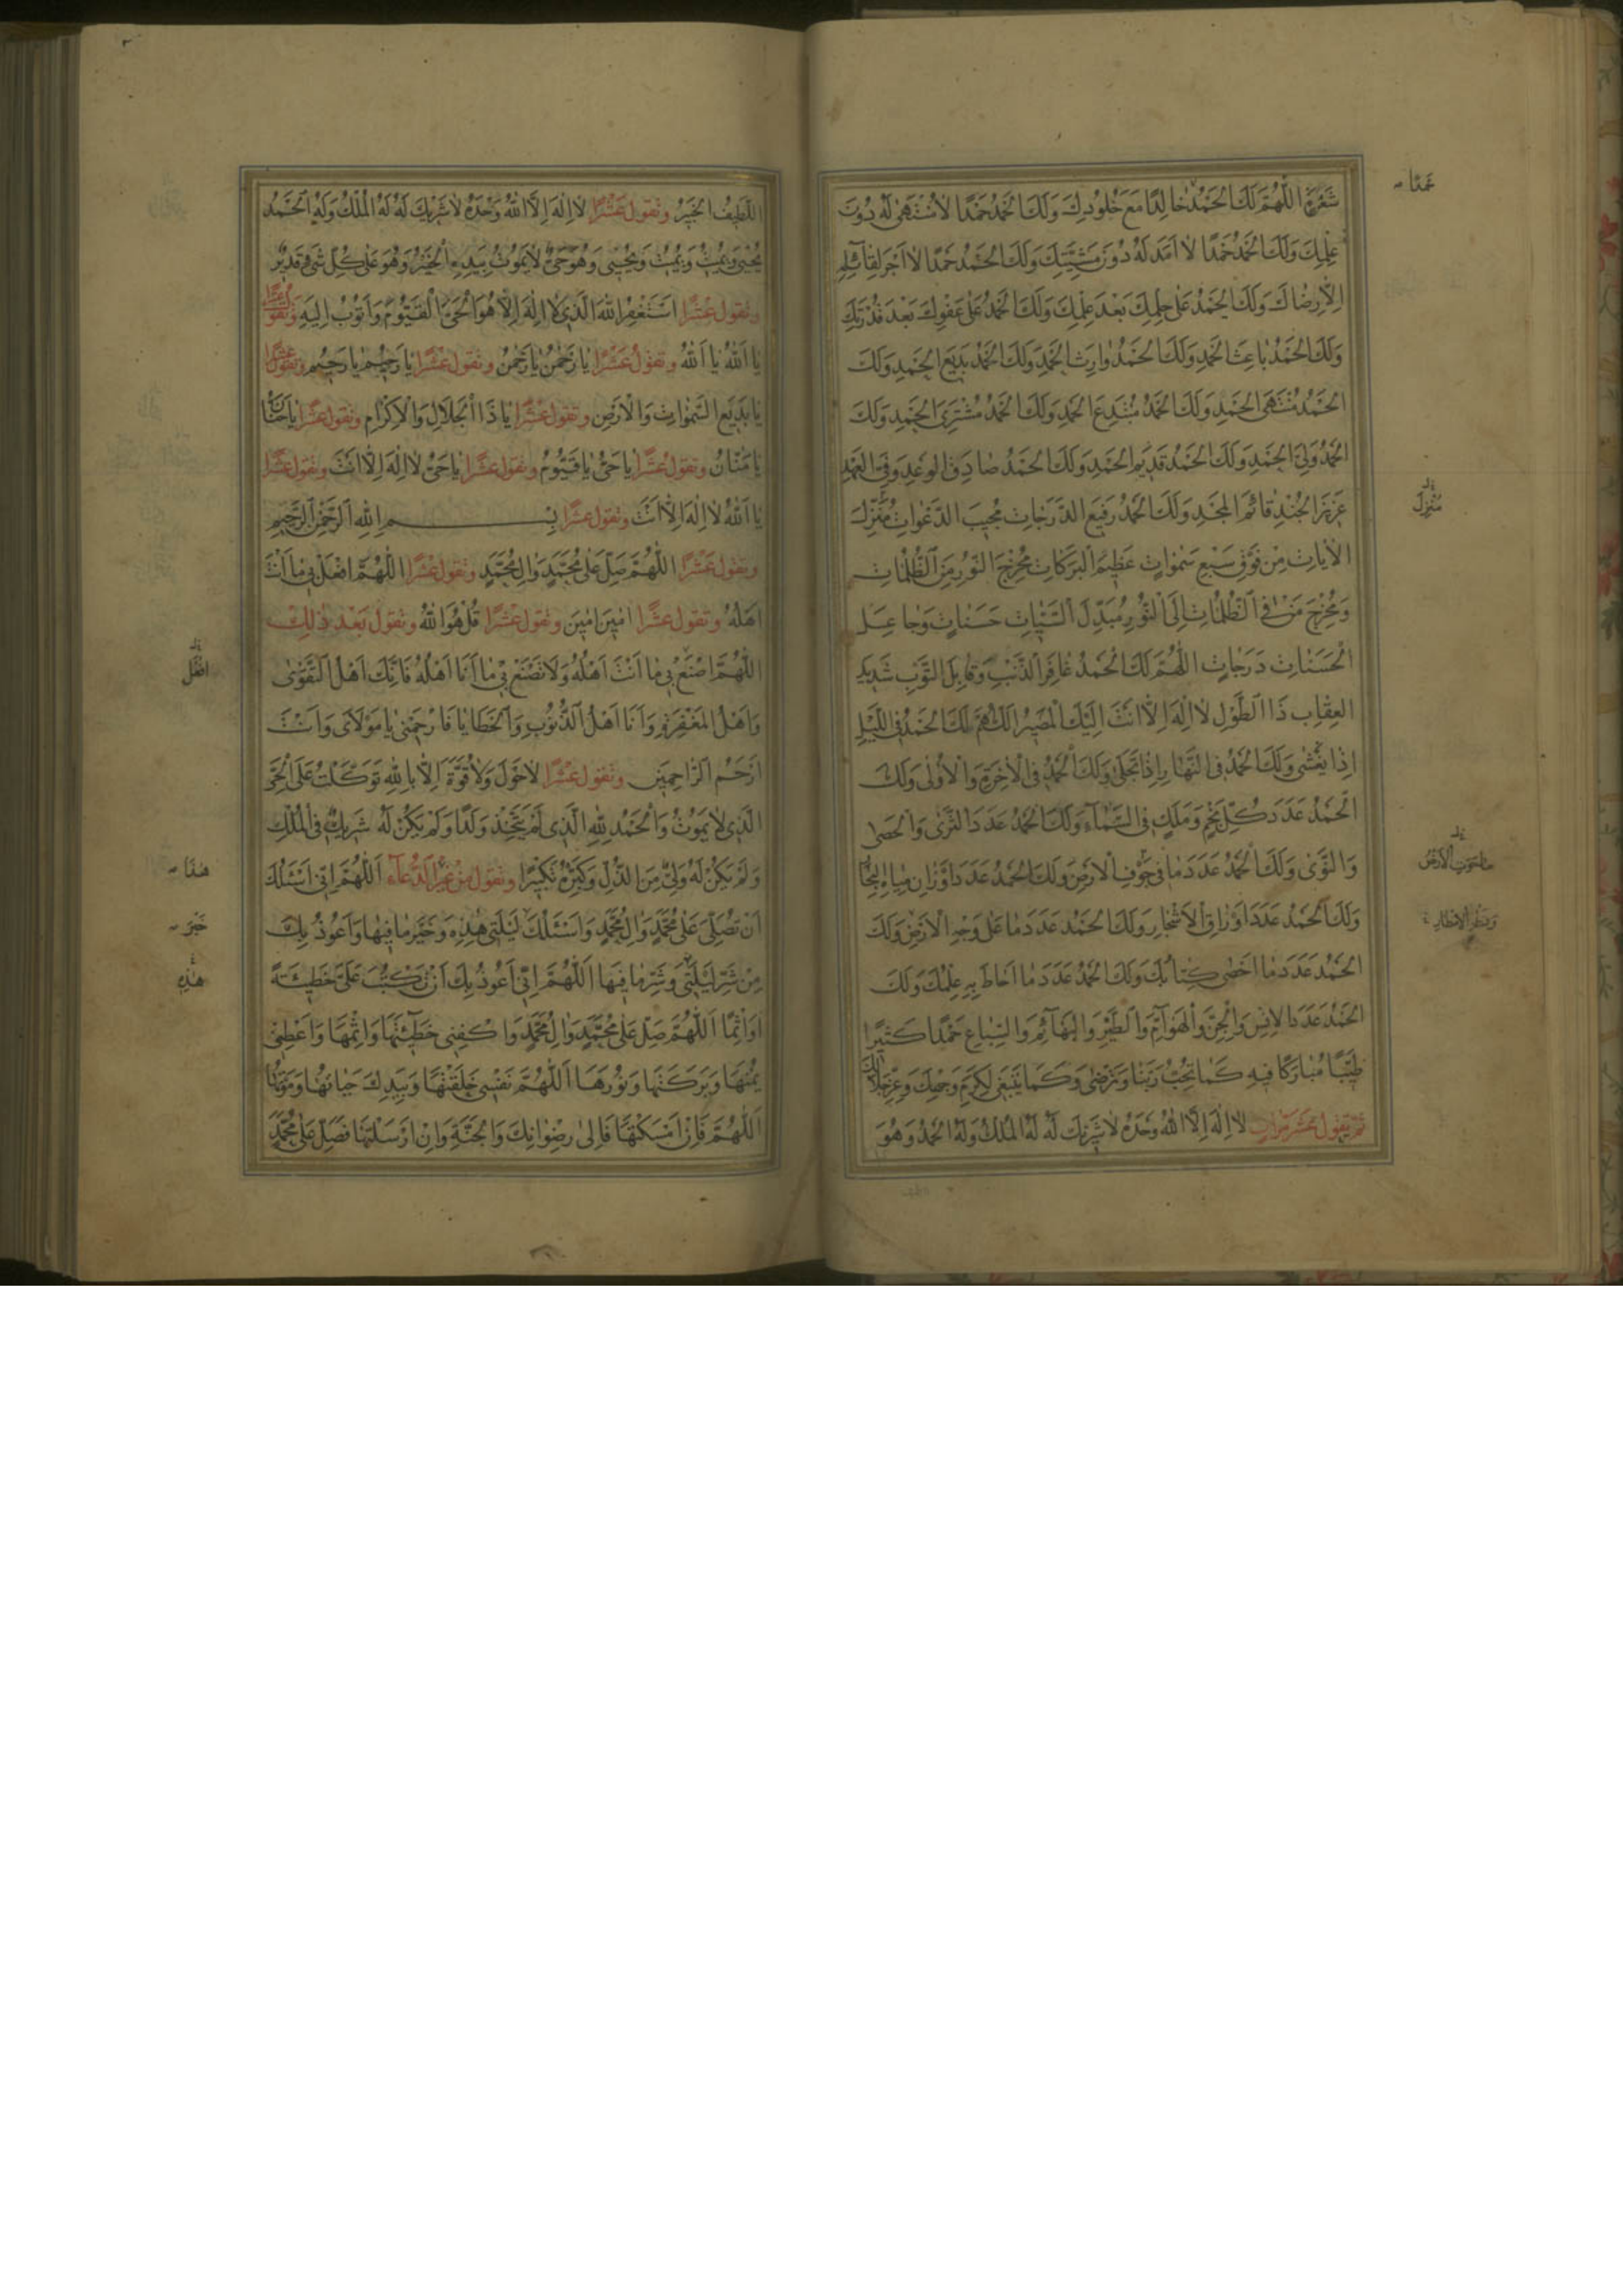 شَعْرَةٍ اَللّٰهُمَّ لَكَ الْحَمْدُ خَالِدًا مَعَ خُلُودِكَ وَلَكَ الْحَمْدُ حَمْدًا لَا مُنْتَهٰى لَهُ دُونَ
عِلْمِكَ وَلَكَ الْحَمْدُ حَمْدًا لَا اَمَدَ لَهُ دُونَ مَشِيَّتِكَ وَلَكَ الْحَمْدُ حَمْدًا لَا اَجْرَ لِقَآئِلِهِ
اِلَّا رِضَاكَ وَلَكَ الْحَمْدُ عَلٰى حِلْمِكَ بَعْدَ عِلْمِكَ وَلَكَ الْحَمْدُ عَلٰى عَفْوِكَ بَعْدَ قُدْرَتِكَ
وَلَكَ الْحَمْدُ بَاعِثَ الْحَمْدِ وَلَكَ الْحَمْدُ وَارِثَ الْحَمْدِ وَلَكَ الْحَمْدُ بَدِيعَ الْحَمْدِ وَلَكَ
الْحَمْدُ مُنْتَهَى الْحَمْدِ وَلَكَ الْحَمْدُ مُبْتَدِعَ الْحَمْدِ وَلَكَ الْحَمْدُ مُشْتَرِىَ الْحَمْدِ وَلَكَ
الْحَمْدُ وَلِىَّ الْحَمْدِ وَلَكَ الْحَمْدُ قَدِيمَ الْحَمْدِ وَلَكَ الْحَمْدُ صَادِقَ الْوَعْدِ وَفِىَّ الْعَهْدِ
عَزِيزَ الْجُنْدِ قَائِمَ الْمَجْدِ وَلَكَ الْحَمْدُ رَفِيعَ الدَّرَجَاتِ مُجِيبَ الدَّعَوَاتِ مُنَزِّلَ
الْاٰيَاتِ مِنْ فَوْقِ سَبْعِ سَمٰوَاتٍ عَظِيمَ الْبَرَكَاتِ مُخْرِجَ النُّورِ مِنَ الظُّلُمَاتِ
وَمُخْرِجَ مَنْ فِى الظُّلُمَاتِ اِلَى النُّورِ مُبَدِّلَ السَّيِّئَاتِ حَسَنَاتٍ وَجَاعِلَ
الْحَسَنَاتِ دَرَجَاتٍ اَللّٰهُمَّ لَكَ الْحَمْدُ غَافِرَ الذَّنْبِ وَقَابِلَ التَّوْبِ شَدِيدَ
الْعِقَابِ ذَا الطَّوْلِ لَا اِلٰهَ اِلَّا اَنْتَ اِلَيْكَ الْمَصِيرُ اَللّٰهُمَّ لَكَ الْحَمْدُ فِى اللَّيْلِ
اِذَا يَغْشٰى وَلَكَ الْحَمْدُ فِى النَّهَارِ اِذَا تَجَلّٰى وَلَكَ الْحَمْدُ فِى الْاٰخِرَةِ وَالْاُوْلٰى وَلَكَ
الْحَمْدُ عَدَدَ كُلِّ نَجْمٍ وَمَلَكٍ فِى السَّمَآءِ وَلَكَ الْحَمْدُ عَدَدَ الثَّرٰى وَالْحَصٰى
وَالنَّوٰى وَلَكَ الْحَمْدُ عَدَدَ مَا فِى جَوْفِ الْاَرْضِ وَلَكَ الْحَمْدُ عَدَدَ اَوْزَانِ مِيَاهِ الْبِحَارِ
وَلَكَ الْحَمْدُ عَدَدَ اَوْرَاقِ الْاَشْجَارِ وَلَكَ الْحَمْدُ عَدَدَ مَا عَلٰى وَجْهِ الْاَرْضِ وَلَكَ
الْحَمْدُ عَدَدَ مَا اَحْصٰى كِتَابُكَ وَلَكَ الْحَمْدُ عَدَدَ مَا اَحَاطَ بِهِ عِلْمُكَ وَلَكَ
الْحَمْدُ عَدَدَ الْاِنْسِ وَالْجِنِّ وَالْهَوَآمِّ وَالطَّيْرِ وَالْبَهَآئِمِ وَالسِّبَاعِ حَمْدًا كَثِيرًا
طَيِّبًا مُبَارَكًا فِيهِ كَمَا تُحِبُّ رَبَّنَا وَتَرْضٰى وَكَمَا يَنْبَغِى لِكَرَمِ وَجْهِكَ وَعِزِّ جَلَالِكَ
ثُمَّ تَقُولُ عَشْرَ مَرَّاتٍ لَا اِلٰهَ اِلَّا اللّٰهُ وَحْدَهُ لَا شَرِيكَ لَهُ لَهُ الْمُلْكُ وَلَهُ الْحَمْدُ وَهُوَ
مُنْزِلَ
اللَّطِيفُ الْخَبِيرُ وَتَقُولُ عَشْرًا لَا اِلٰهَ اِلَّا اللّٰهُ وَحْدَهُ لَا شَرِيكَ لَهُ لَهُ الْمُلْكُ وَلَهُ الْحَمْدُ
يُحْيِى وَيُمِيتُ وَيُمِيتُ وَيُحْيِى وَهُوَ حَىٌّ لَا يَمُوتُ بِيَدِهِ الْخَيْرُ وَهُوَ عَلٰى كُلِّ شَىْءٍ قَدِيرٌ
وَتَقُولُ عَشْرًا اَسْتَغْفِرُ اللّٰهَ الَّذِى لَا اِلٰهَ اِلَّا هُوَ الْحَىُّ الْقَيُّومُ وَاَتُوبُ اِلَيْهِ وَتَقُولُ عَشْرًا
يَا اَللّٰهُ يَا اَللّٰهُ وَتَقُولُ عَشْرًا يَا رَحْمٰنُ يَا رَحْمٰنُ وَتَقُولُ عَشْرًا يَا رَحِيمُ يَا رَحِيمُ وَتَقُولُ عَشْرًا
يَا بَدِيعَ السَّمٰوَاتِ وَالْاَرْضِ وَتَقُولُ عَشْرًا يَا ذَا الْجَلَالِ وَالْاِكْرَامِ وَتَقُولُ عَشْرًا يَا حَنَّانُ
يَا مَنَّانُ وَتَقُولُ عَشْرًا يَا حَىُّ يَا قَيُّومُ وَتَقُولُ عَشْرًا يَا حَىُّ لَا اِلٰهَ اِلَّا اَنْتَ وَتَقُولُ عَشْرًا
يَا اَللّٰهُ لَا اِلٰهَ اِلَّا اَنْتَ وَتَقُولُ عَشْرًا بِسْمِ اللّٰهِ الرَّحْمٰنِ الرَّحِيمِ
وَتَقُولُ عَشْرًا اَللّٰهُمَّ صَلِّ عَلٰى مُحَمَّدٍ وَاٰلِ مُحَمَّدٍ وَتَقُولُ عَشْرًا اَللّٰهُمَّ افْعَلْ بِى مَا اَنْتَ
اَهْلُهُ وَتَقُولُ عَشْرًا اٰمِينَ اٰمِينَ وَتَقُولُ عَشْرًا قُلْ هُوَ اللّٰهُ وَتَقُولُ بَعْدَ ذٰلِكَ
اَللّٰهُمَّ اصْنَعْ بِى مَا اَنْتَ اَهْلُهُ وَلَا تَصْنَعْ بِى مَا اَنَا اَهْلُهُ فَاِنَّكَ اَهْلُ التَّقْوٰى
وَاَهْلُ الْمَغْفِرَةِ وَاَنَا اَهْلُ الذُّنُوبِ وَالْخَطَايَا فَارْحَمْنِى يَا مَوْلَاىَ وَاَنْتَ
اَرْحَمُ الرَّاحِمِينَ وَتَقُولُ عَشْرًا لَا حَوْلَ وَلَا قُوَّةَ اِلَّا بِاللّٰهِ تَوَكَّلْتُ عَلَى الْحَىِّ
الَّذِى لَا يَمُوتُ وَالْحَمْدُ لِلّٰهِ الَّذِى لَمْ يَتَّخِذْ وَلَدًا وَلَمْ يَكُنْ لَهُ شَرِيكٌ فِى الْمُلْكِ
وَلَمْ يَكُنْ لَهُ وَلِىٌّ مِنَ الذُّلِّ وَكَبِّرْهُ تَكْبِيرًا وَتَقُولُ مِنْ غَيْرِ الدُّعَآءِ اَللّٰهُمَّ اِنِّى اَسْئَلُكَ
اَنْ تُصَلِّىَ عَلٰى مُحَمَّدٍ وَاٰلِ مُحَمَّدٍ وَاَسْئَلُكَ لَيْلَتِى هٰذِهِ وَخَيْرَ مَا فِيهَا وَاَعُوذُ بِكَ
مِنْ شَرِّ لَيْلَتِى وَشَرِّ مَا فِيهَا اَللّٰهُمَّ اِنِّى اَعُوذُ بِكَ اَنْ تَكْتُبَ عَلَىَّ خَطِيئَةً
اَوْ اِثْمًا اَللّٰهُمَّ صَلِّ عَلٰى مُحَمَّدٍ وَاٰلِ مُحَمَّدٍ وَاكْفِنِى خَطِيٓئَتَهَا وَاِثْمَهَا وَاَعْطِنِى
يُمْنَهَا وَبَرَكَتَهَا وَنُورَهَا اَللّٰهُمَّ نَفْسِى خَلَقْتَهَا وَبِيَدِكَ حَيَاتُهَا وَمَوْتُهَا
اَللّٰهُمَّ فَاِنْ اَمْسَكْتَهَا فَاِلٰى رِضْوَانِكَ وَالْجَنَّةِ وَاِنْ اَرْسَلْتَهَا فَصَلِّ عَلٰى مُحَمَّدٍ
افْعَلْ
هٰذَا
خَيْرَ
هٰذِهِ